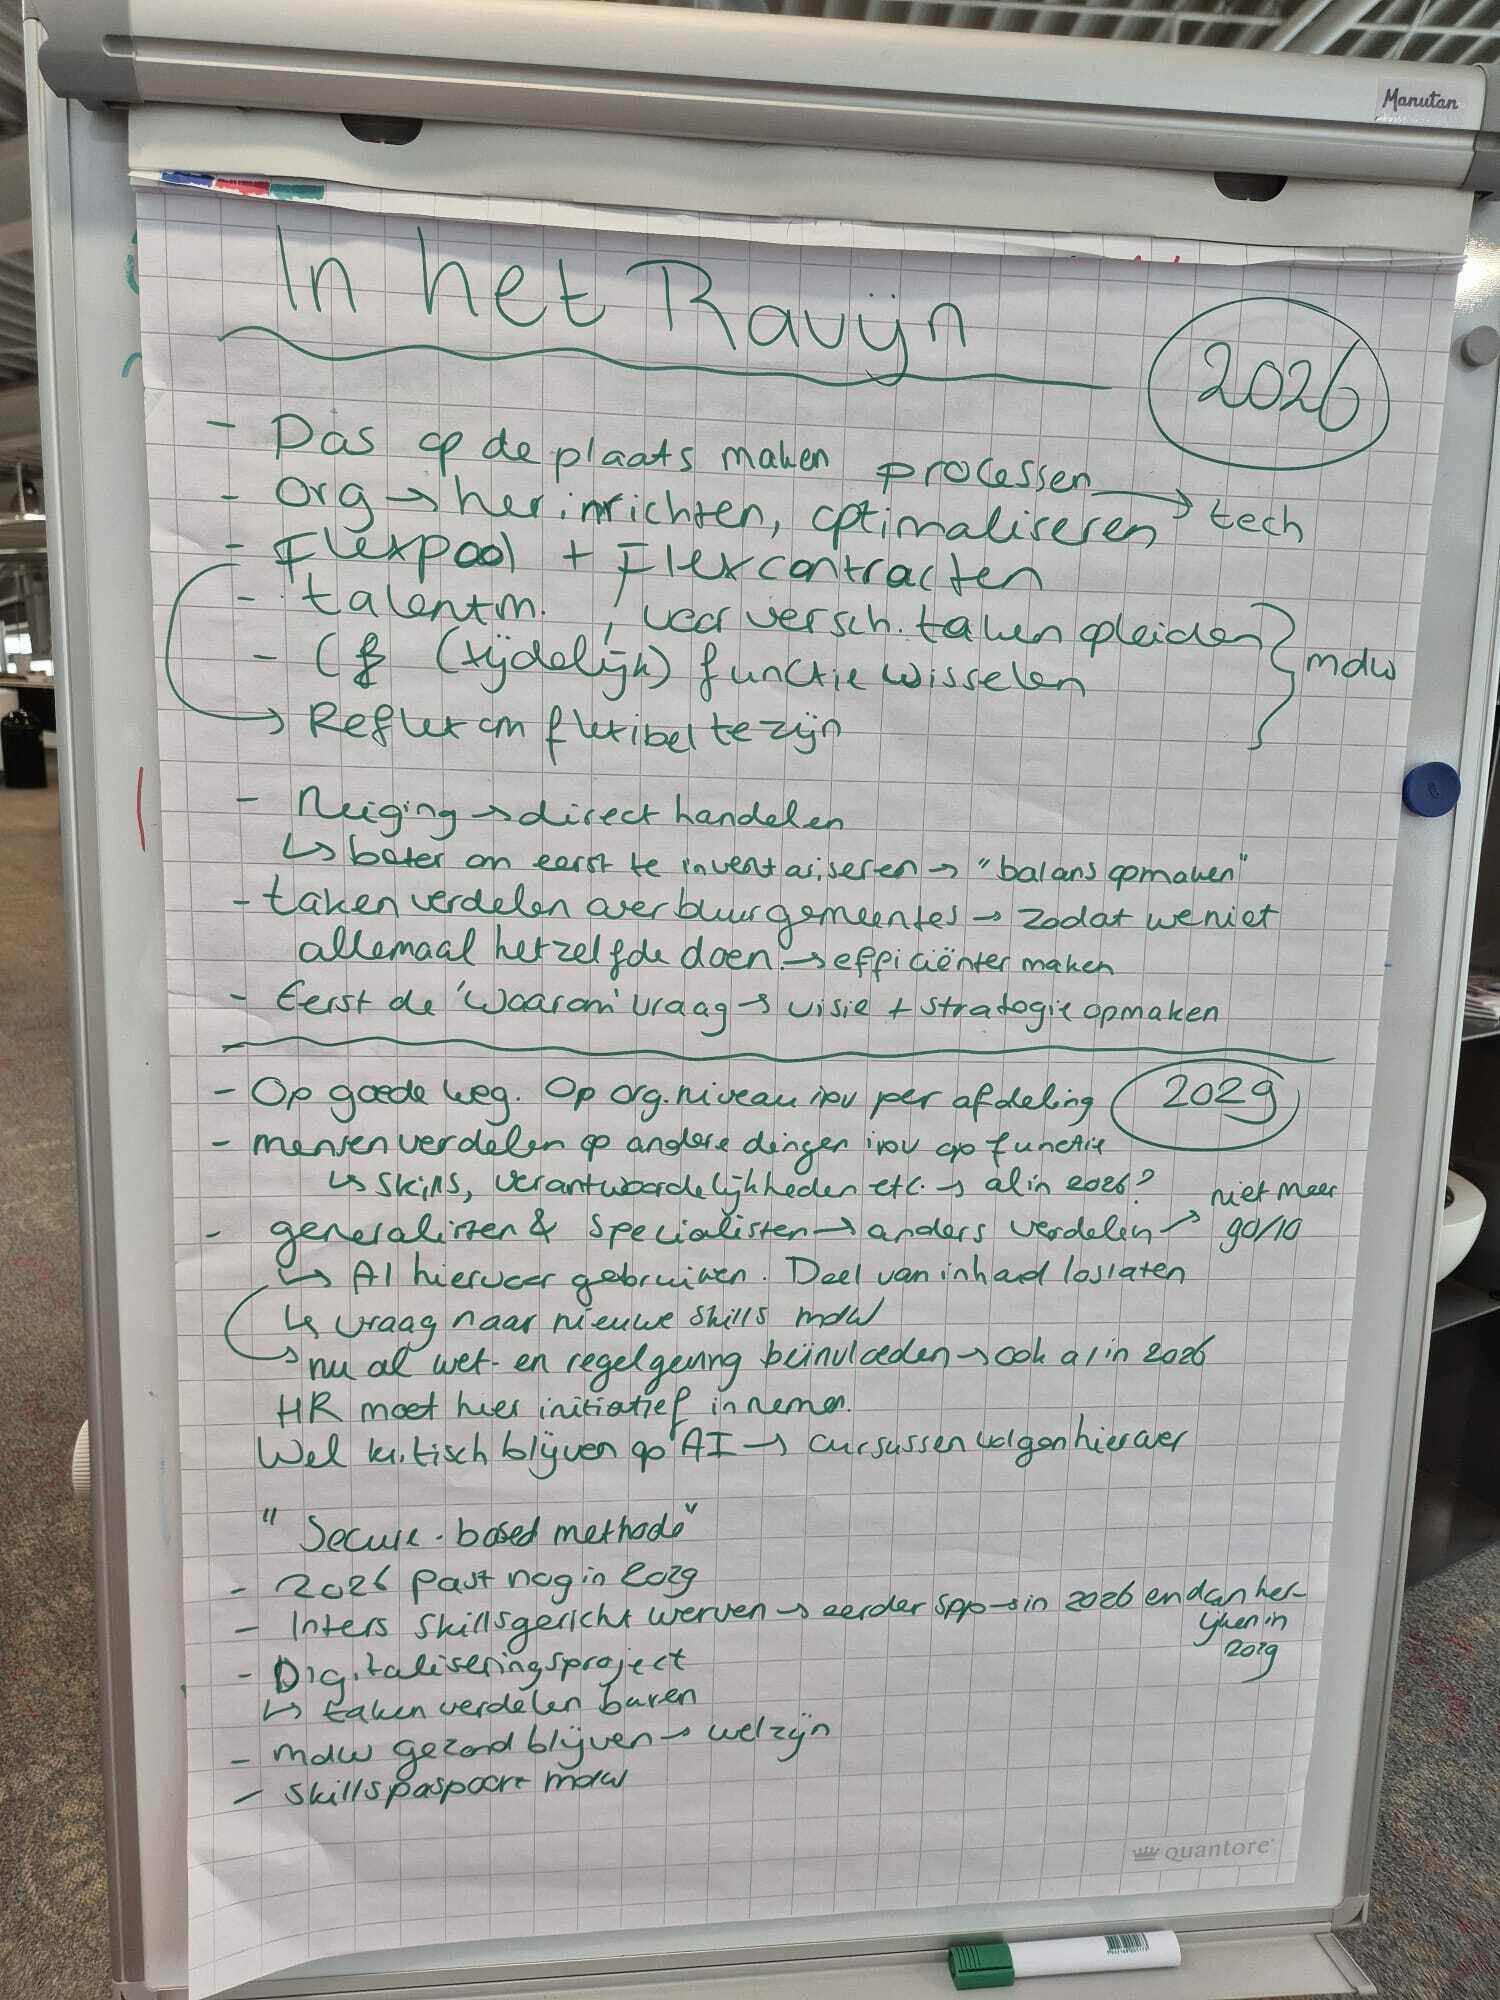 Manutan
In het Ravijn
2026
- Pas op de plaats maken
- Org → herinrichten, processen optimaliseren → tech
- Flexpool + Flexcontracten
- talentm. , voor versch. taken opleiden
- (tijdelijk) functie wisselen
mdw
→ Reflex om flexibel te zijn
- Neiging → direct handelen
↳ beter om eerst te inventariseren → "balans opmaken"
- taken verdelen over buurgemeentes → zodat we niet
allemaal hetzelfde doen. → efficiënter maken
- Eerst de 'waarom' vraag → visie + strategie opmaken
2029
- Op goede weg. Op org.niveau ipv per afdeling
- mensen verdelen op andere dingen ipv op functie
↳ skills, verantwoordelijkheden etc. → al in 2026?
- generalisten & specialisten → anders verdelen → niet meer
90/10
↳ AI hiervoor gebruiken. Deel van inhoud loslaten
↳ vraag naar nieuwe skills mdw
→ nu al wet- en regelgeving beïnvloeden → ook al in 2026
HR moet hier initiatief in nemen.
Wel kritisch blijven op AI → cursussen volgen hierover
"Secure-based methode"
- 2026 past nog in 2029
- Inters skillsgericht werven → eerder spp → in 2026 en dan her-
ijken in
2029
- Digitaliseringsproject
↳ taken verdelen buren
- mdw gezond blijven → welzijn
- Skillspaspoort mdw
quantore